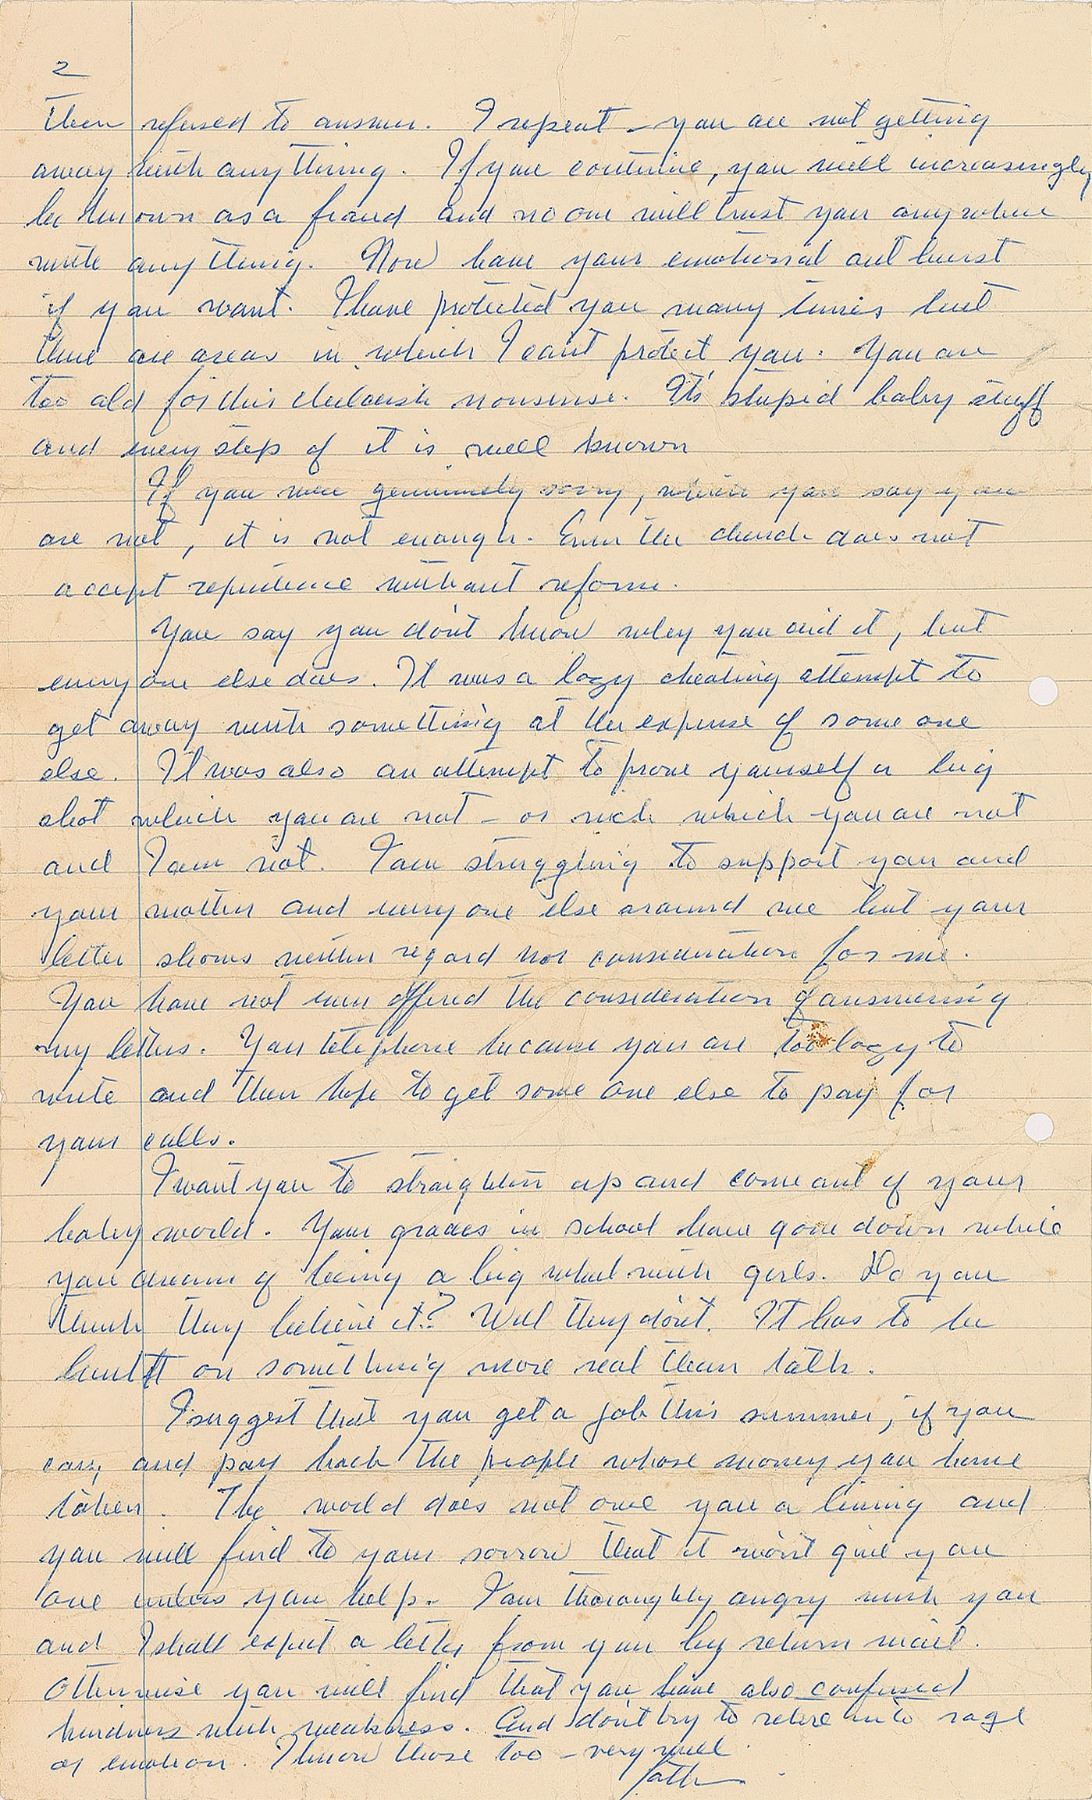 2
then refused to answer. I repeat - you are not getting
away with anything. If you continue, you will increasingly
be known as a fraud and no one will trust you anywhere
with anything. Now have your emotional out burst
if you want. I have protected you many times but
there are areas in which I can't protect you. You are
too old for this childish nonsense. It's stupid baby stuff
and every step of it is well known
If you were genuinely sorry, which you say you
are not, it is not enough. Even the church does not
accept repentence without reform.
You say you don't know why you did it, but
every one else does. It was a lazy cheating attempt to
get away with something at the expense of some one
else. It was also an attempt to prove yourself a big
shot which you are not - or rich which you are not
and I am not. I am struggling to support you and
your mother and every one else around me but your
letter shows neither regard nor consideration for me.
You have not even offered the consideration of answering
my letters. You telephone because you are too lazy to
write and then hope to get some one else to pay for
your calls.
I want you to straighten up and come out of your
baby world. Your grades in school have gone down while
you dream of being a big wheel with girls. Do you
think they believe it? Well they don't. It has to be
built on something more real than talk.
I suggest that you get a job this summer, if you
can, and pay back the people whose money you have
taken. The world does not owe you a living and
you will find to your sorrow that it won't give you
one unless you help. I am thoroughly angry with you
and I shall expect a letter from you by return mail.
Otherwise you will find that you have also confused
kindness with weakness. And don't try to retire into rage
or emotion. I know those too - very well.
Father